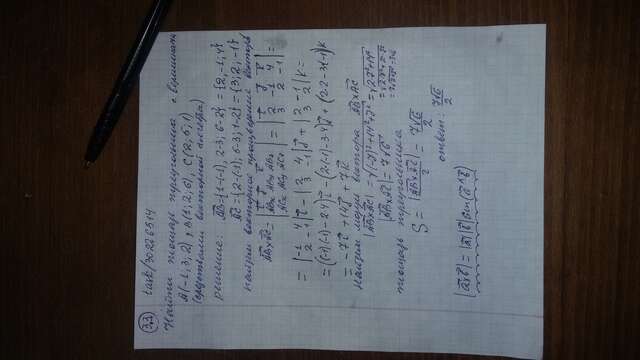 3.3 task/30226514
Найти площадь треугольника с вершинами
A(-1; 3; 2), B(1; 2; 6), C(2; 5; 1)
(средствами векторной алгебры)
решение: AB={1-(-1), 2-3; 6-2}={2,-1,4}
AC={2-(-1), 5-3; 1-2}={3; 2; -1}
Найдем векторное произведение вектора
AB×AC = | i j k ; ABx ABy ABz ; ACx ACy ACz | = | i j k ; 2 -1 4 ; 3 2 -1 | =
= | -1 4 ; 2 -1 | i - | 2 4 ; 3 -1 | j + | 2 -1 ; 3 2 | k =
= ((-1)(-1)-2·4) i - (2·(-1)-3·4) j + (2·2-3·(-1)) k
= -7i + 14j + 7k
Найдем модуль вектора AB×AC
|AB×AC| = √(-7)²+14²+7² = √2·7²+14²
|AB×AC| = 7√6
площадь треугольника
S = |AB×AC| / 2 = 7√6 / 2
ответ: 7√6 / 2
|a×b| = |a| |b| sin(a^b)